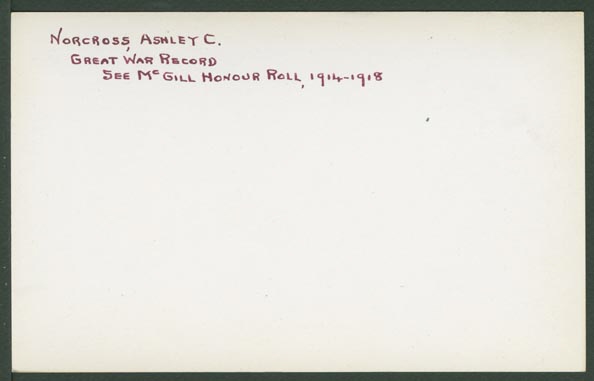 Norcross, Ashley C.
Great War Record
See McGill Honour Roll, 1914-1918